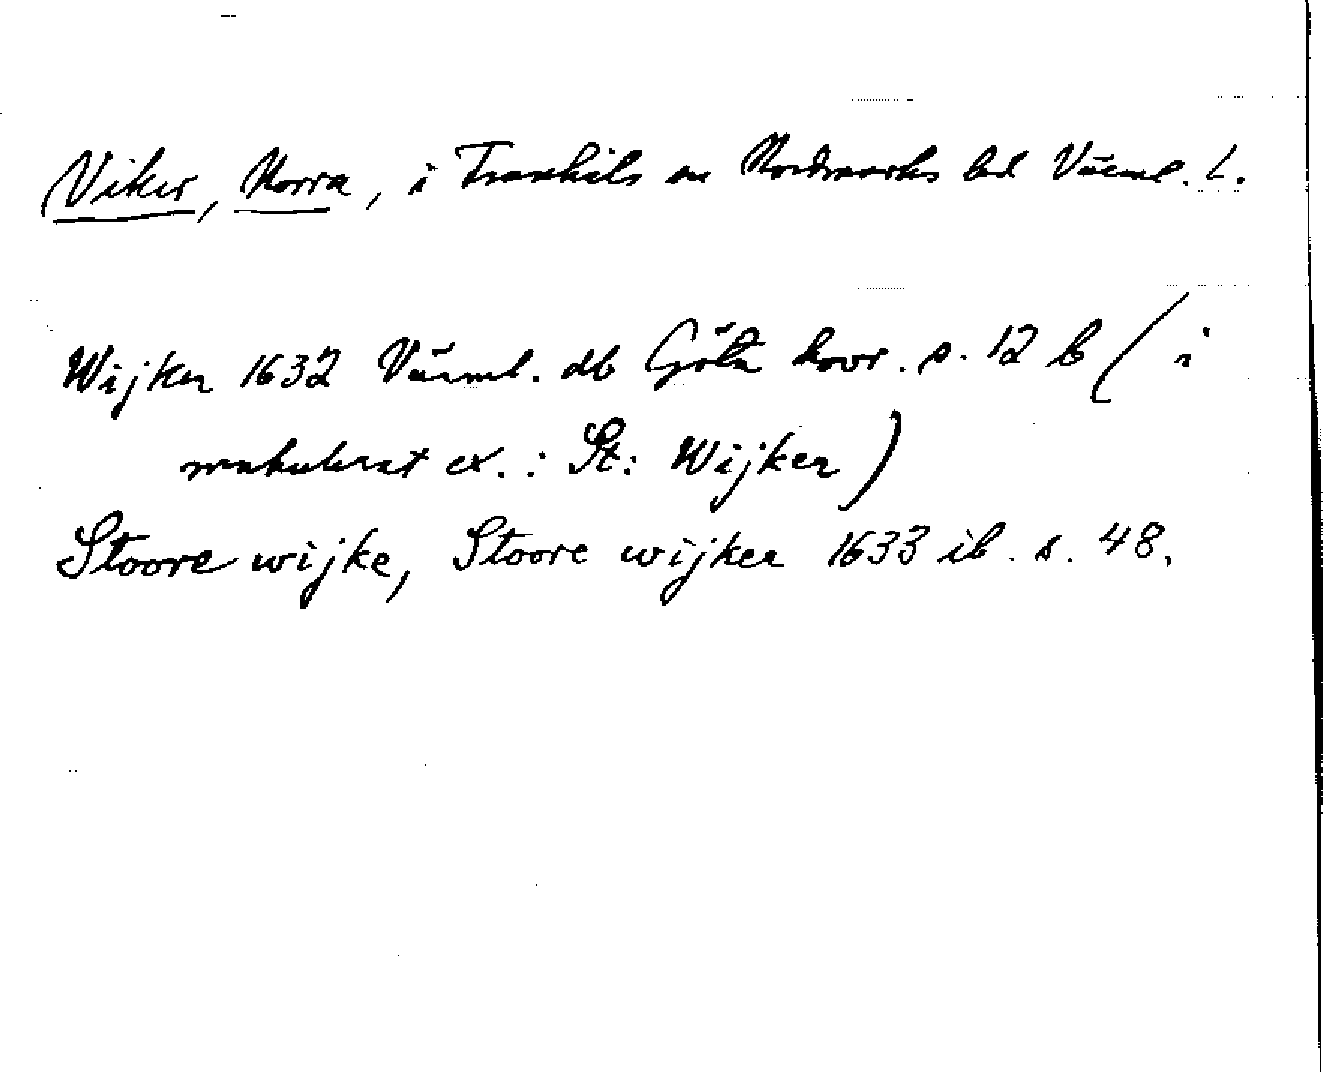 Viker, Norra, i Trankils sn Nordmarks hd Värml. l.
Wijker 1632 Värml. db Göta hovr. s. 12 b (i
makulerat ex. : St: Wijker)
Stoore wijke, Stoore wijker 1633 ib. s. 48.